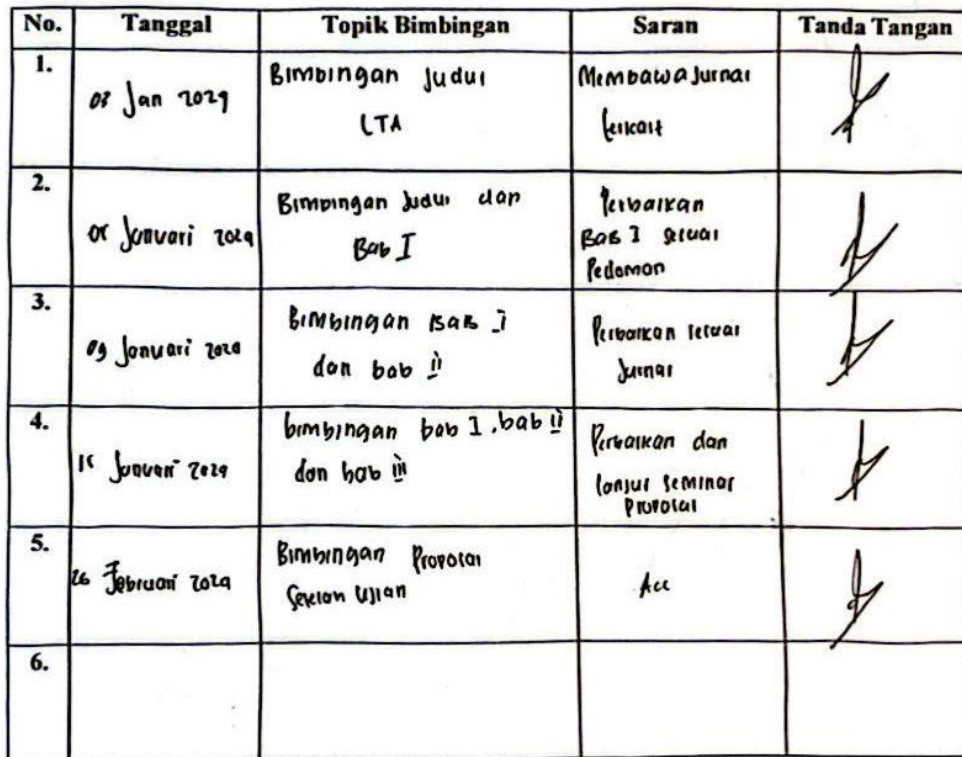 No. Tanggal Topik Bimbingan Saran Tanda Tangan
1.
Bimbingan Judul
LTA
Jan 2024
Membawa Jurnal
terkait
2.
Januari 2024
Bimbingan Judul dan
Bab I
Perbaikan
Bab I sesuai
Pedoman
3.
09 Januari 2024
Bimbingan Bab I
dan bab II
Perbaikan sesuai
Jurnal
4.
Januari 2024
bimbingan bab I, bab II
dan bab III
Perbaikan dan
lanjut seminar
proposal
5.
26 Februari 2024
Bimbingan Proposal
Setelah Ujian
Acc
6.